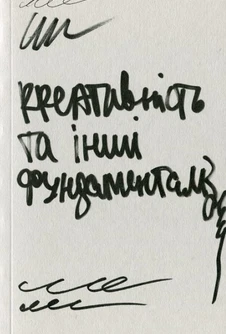 креативність
та інші
фундаменталіз